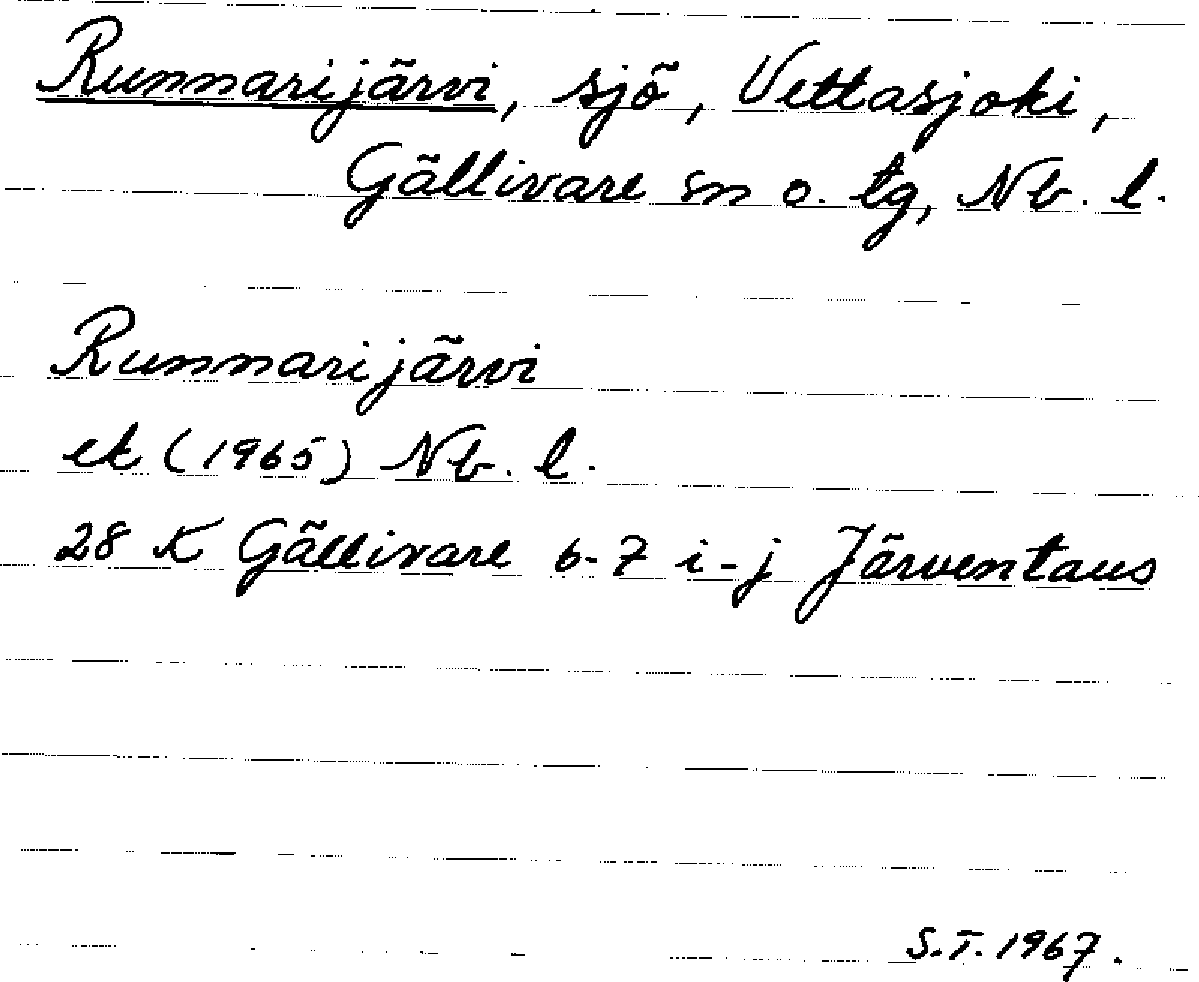 Runnarijärvi, sjö, Vettasjoki,
Gällivare sn o. tg, Nb. l.
Runnarijärvi
ek (1965) Nb. l.
28 K Gällivare 6-7 i-j Järventaus
S.T. 1967.